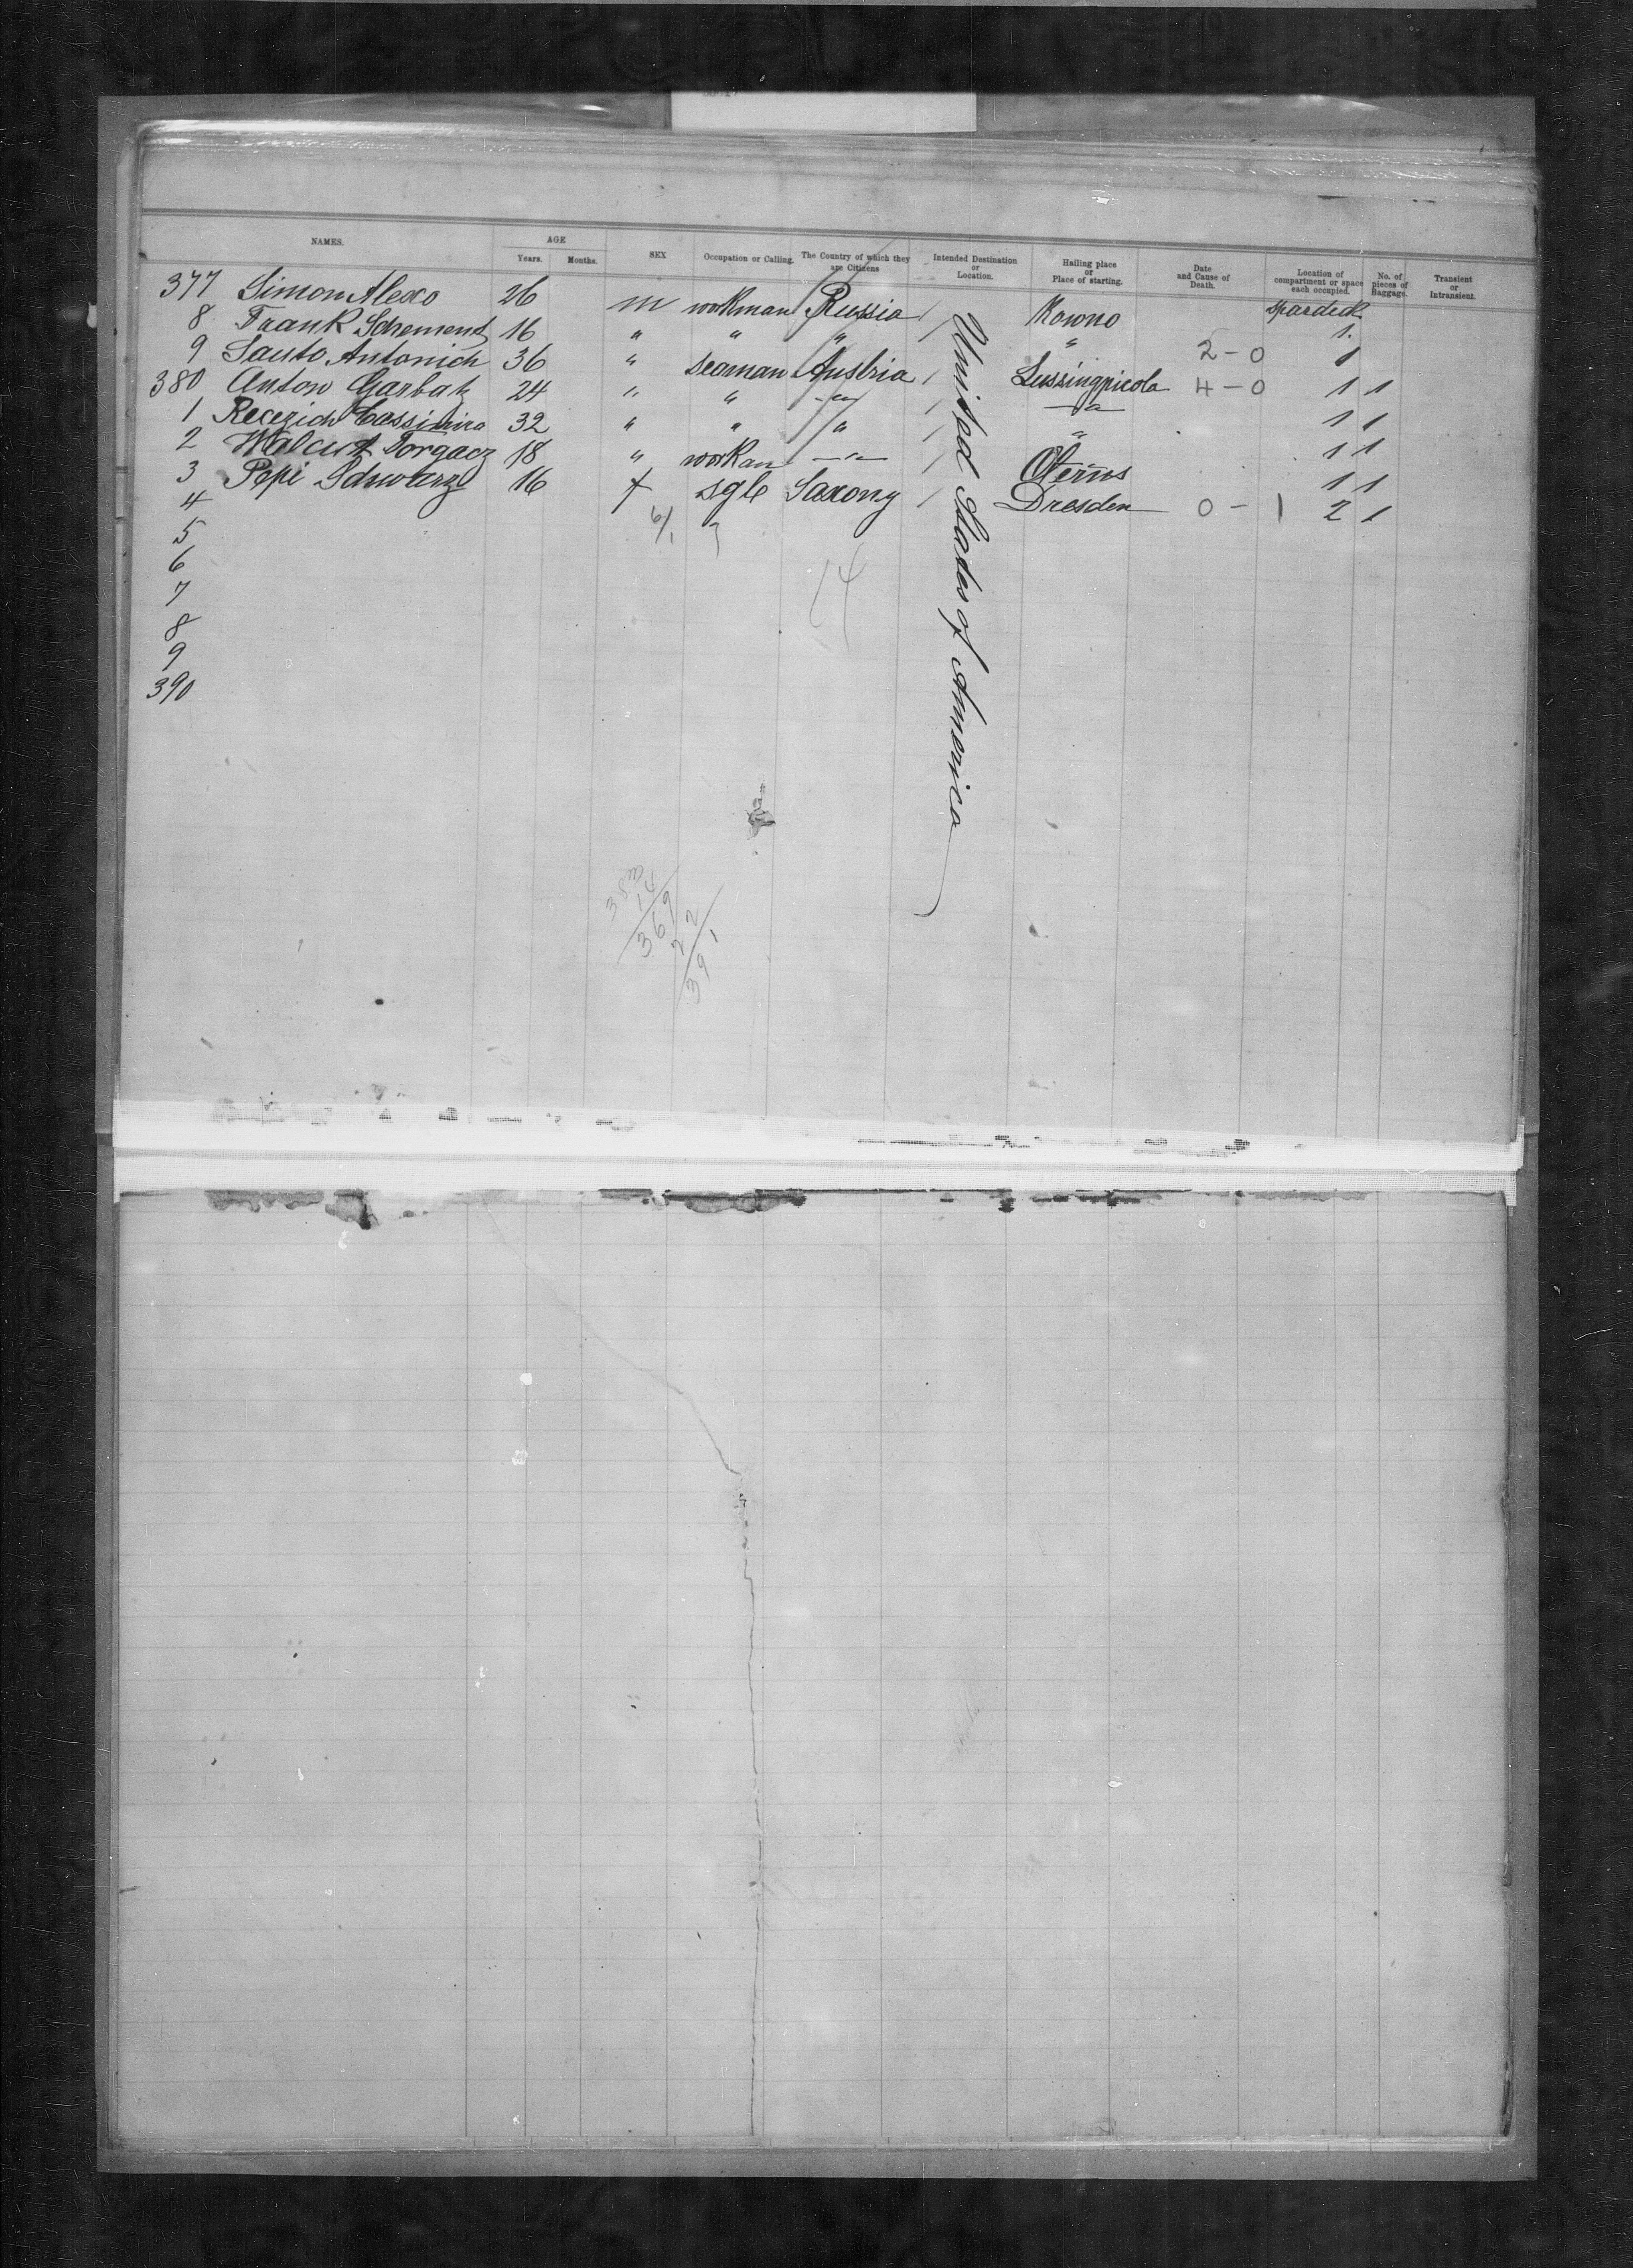 NAMES. AGE SEX Occupation or Calling. The Country of which they are Citizens Intended Destination or Location. Hailing place or Place of starting. Date and Cause of Death. Location of compartment or space each occupied. No. of pieces of Baggage. Transient or Intransient.
Years. Months.
377 Simon Alexo 26 m workman Russia / Kowno spardeck 1.
8 Frank Schement 16 " " " / " 2-0 1
9 Santo Antonich 36 " seaman Austria / Lussingpicola 4-0 1 1
380 Anton Garbatz 24 " " -"- / -"- 1 1
1 Recezich Cassimira 32 " " " / " 1 1
2 Torgacz 18 " workan -"- / 1 1
3 Pepi Schwarz 16 f sgle Saxony / Dresden 0-1 2 1
4
5
6
7
8
9
390
United States of America
6/1
14
383
14
369
22
391